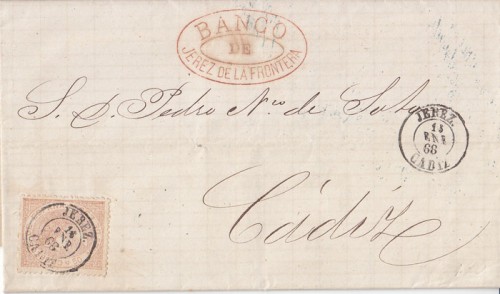 BANCO
DE
JEREZ DE LA FRONTERA
S. D. Pedro N.co de Soto
JEREZ.
15
ENE
66
CADIZ
Cádiz
JEREZ.
ENE
66